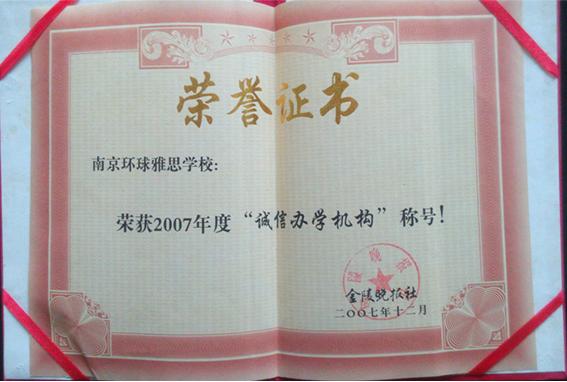 荣誉证书
南京环球雅思学校:
荣获2007年度“诚信办学机构”称号!
金陵晚报社
二〇〇七年十二月